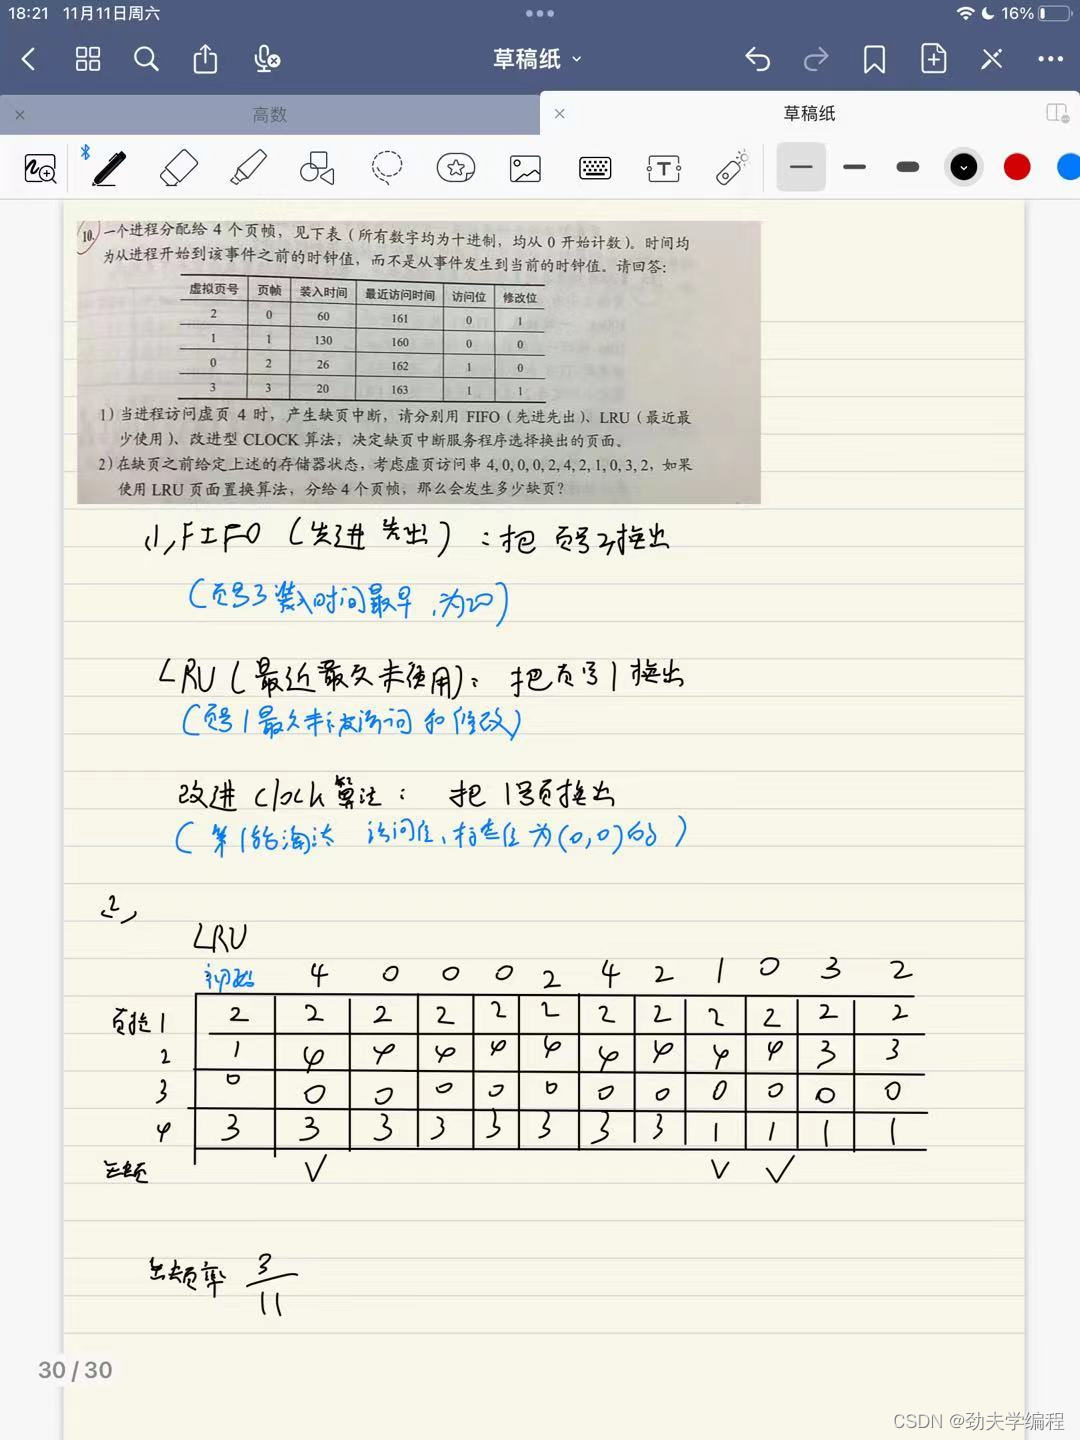 18:21 11月11日周六 16%
草稿纸
高数
草稿纸
10. 一个进程分配给 4 个页帧，见下表（所有数字均为十进制，均从 0 开始计数）。时间均
为从进程开始到该事件之前的时钟值，而不是从事件发生到当前的时钟值。请回答：
虚拟页号 页帧 装入时间 最近访问时间 访问位 修改位
2 0 60 161 0 1
1 1 130 160 0 0
0 2 26 162 1 0
3 3 20 163 1 1
1) 当进程访问虚页 4 时，产生缺页中断，请分别用 FIFO（先进先出）、LRU（最近最
少使用）、改进型 CLOCK 算法，决定缺页中断服务程序选择换出的页面。
2) 在缺页之前给定上述的存储器状态，考虑虚页访问串 4, 0, 0, 0, 2, 4, 2, 1, 0, 3, 2，如果
使用 LRU 页面置换算法，分给 4 个页帧，那么会发生多少缺页？
(1) FIFO（先进先出）：把 页号3换出
（页号3装入时间最早，为20）
LRU（最近最久未使用）：把页号1换出
（页号1最久未被访问和修改）
改进 clock 算法： 把 1号页换出
（第1轮淘汰 访问位、 位为(0,0)的）
(2)
LRU
初始 4 0 0 0 2 4 2 1 0 3 2
页框1 2 2 2 2 2 2 2 2 2 2 2 2
2 1 4 4 4 4 4 4 4 4 4 3 3
3 0 0 0 0 0 0 0 0 0 0 0 0
4 3 3 3 3 3 3 3 3 1 1 1 1
缺页 √ √ √
缺页率 3/11
30 / 30
CSDN @劲夫学编程